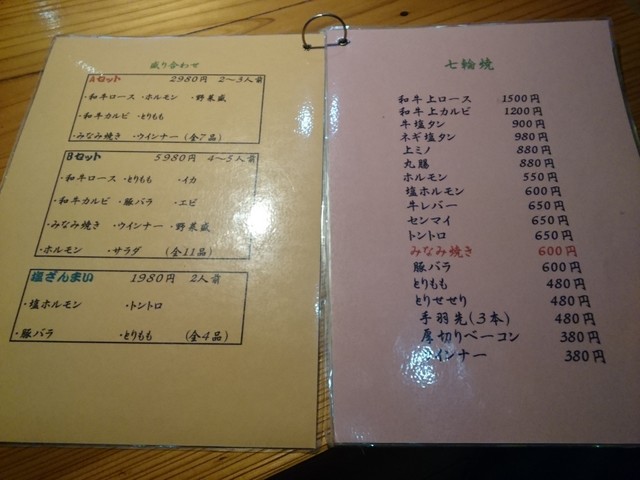 盛り合わせ
Aセット 2980円 2～3人前
・和牛ロース ・ホルモン ・野菜盛
・和牛カルビ ・とりもも
・みなみ焼き ・ウインナー (全7品)
Bセット 5980円 4～5人前
・和牛ロース ・とりもも ・イカ
・和牛カルビ ・豚バラ ・エビ
・みなみ焼き ・ウインナー ・野菜盛
・ホルモン ・サラダ (全11品)
塩ざんまい 1980円 2人前
・塩ホルモン ・トントロ
・豚バラ ・とりもも (全4品)
七輪焼
和牛上ロース 1500円
和牛上カルビ 1200円
牛塩タン 900円
ネギ塩タン 980円
上ミノ 880円
丸腸 880円
ホルモン 550円
塩ホルモン 600円
牛レバー 650円
センマイ 650円
トントロ 650円
みなみ焼き 600円
豚バラ 600円
とりもも 480円
とりせせり 480円
手羽先(3本) 480円
厚切りベーコン 380円
インナー 380円